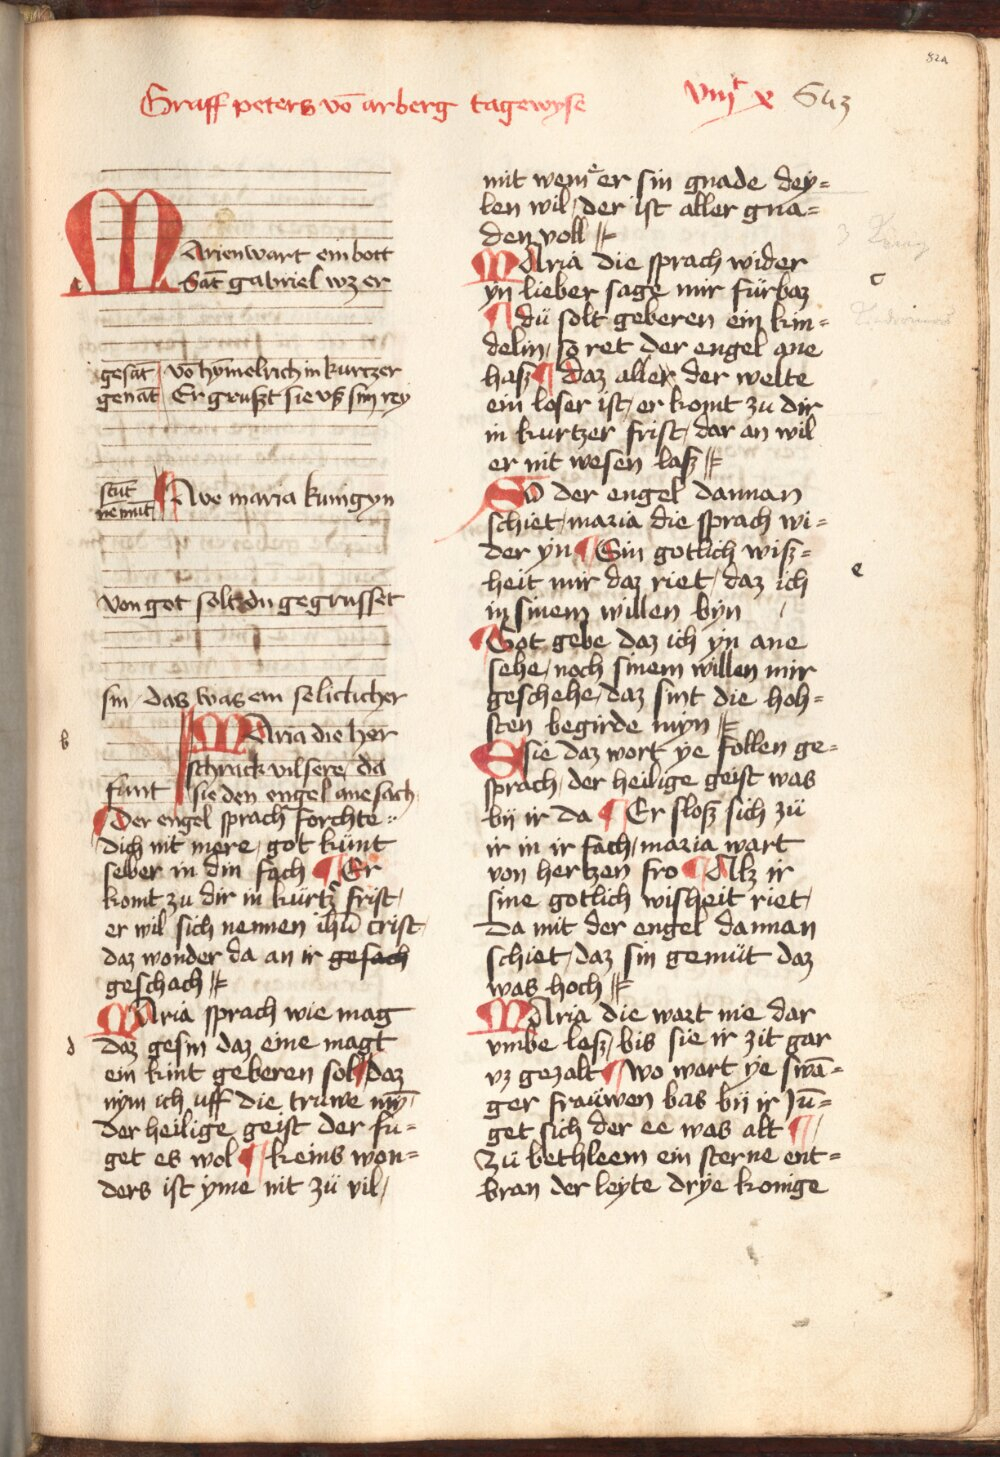 82a
Graff peters vō arberg tagewyse
viijᶜ x
843
MArien wart ein bott
Gāt gabriel wz er
gesāt vō hÿmelrich in kurtzer
genāt Er grußt sie vß sim
stūt Ave maria kunigyn
ne mūt
von got soltu du gegrusset
sin das was ein seliclicher
b
MAria die her
schrack vil sere / da
funt sie den engel ane sach
Der engel sprach forchte
dich nit mere / got künt
selber in din fach ¶ Er
komt zu dir in kürtzer frist /
er wil sich nennen ihū crist
daz wonder da an ir gesach
geschach
MAria sprach wie mag
d
daz gesin daz eine magt
ein kint geberen sol ¶ daz
nym ich uff die truwe mÿ
der heilige geist der fu=
get es wol ¶ keins won=
ders ist yme nit zü vil /
mit wem er sin gnade dey=
len wil / der ist aller gna=
den voll
MAria die sprach wider
yn lieber sage mir fürbaz
c
¶ dü solt geberen ein kin=
delin / so ret der engel ane
hasz ¶ daz aller der welte
ein loser ist / er komt zu dir
in kurtzer frist / dar an wil
er nit wesen lasz
So der engel dannan
schiet / maria die sprach wi=
der yn ¶ Sin gotlich wisz=
e
heit mir daz riet / daz ich
in sinem willen byn
Got gebe daz ich yn ane
sehe / noch sinem willen mir
geschehe / daz sint die hoh=
sten begirde myn
Sie daz wort ye follen ge=
sprach / der heilige geist was
bij ir da ¶ Er slosz sich zü
ir in ir fach / maria wart
von hertzen fro ¶ Alz ir
sine gotlich wisheit riet /
Da mit der engel dannan
schiet / daz sin gemüt daz
was hoch
MAria die wart nie dar
vmbe lasz / bis sie ir zit gar
vz gezalt ¶ wo wart ye swā=
ger fraüwen bas bij ir Jū=
get sich der ee was alt ¶
Zü bethleem ein sterne ent=
bran der leyte drÿe konige